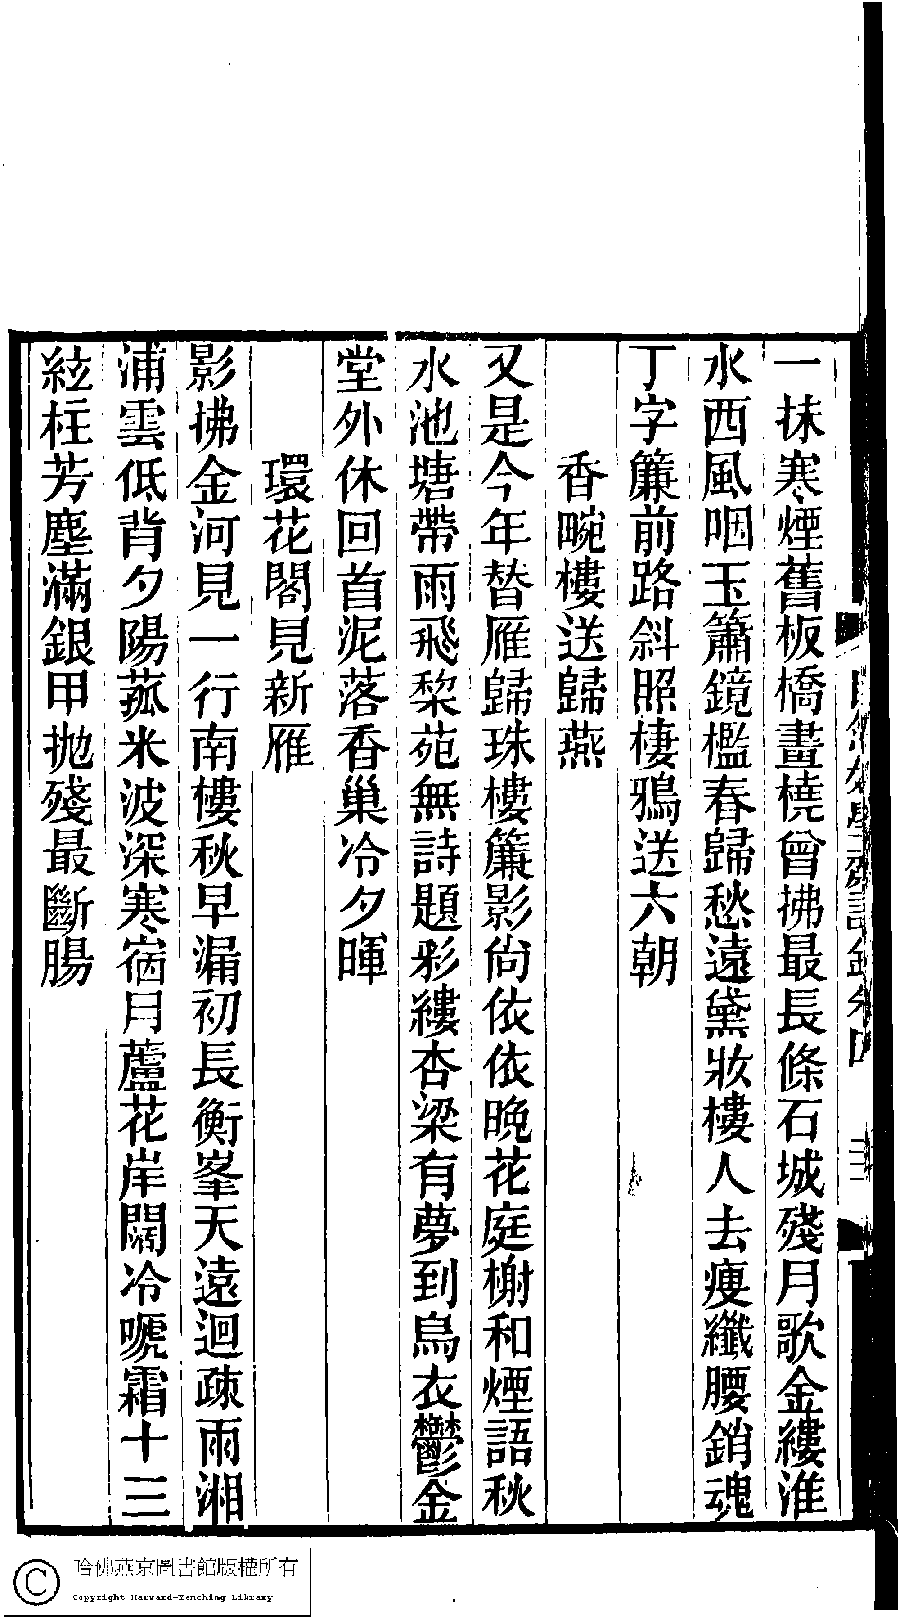 一抹寒煙舊板橋畫橈曾拂最長條石城殘月歌金縷淮
水西風咽玉簫鏡檻春歸愁遠黛妝樓人去瘦纖腰銷魂
丁字簾前路斜照棲鴉送六朝
香畹樓送歸燕
又是今年替雁歸珠樓簾影尙依依晩花庭榭和煙語秋
水池塘帶雨飛棃苑無詩題彩縷杏梁有夢到烏衣鬱金
堂外休回首泥落香巢冷夕暉
環花閣見新雁
影拂金河見一行南樓秋早漏初長衡峯天遠迴疎雨湘
浦雲低背夕陽菰米波深寒宿月蘆花岸闊冷唬霜十三
絃柱芳塵滿銀甲拋殘最斷腸
哈佛燕京圖書館版權所有
Copyright Harvard-Yenching Library